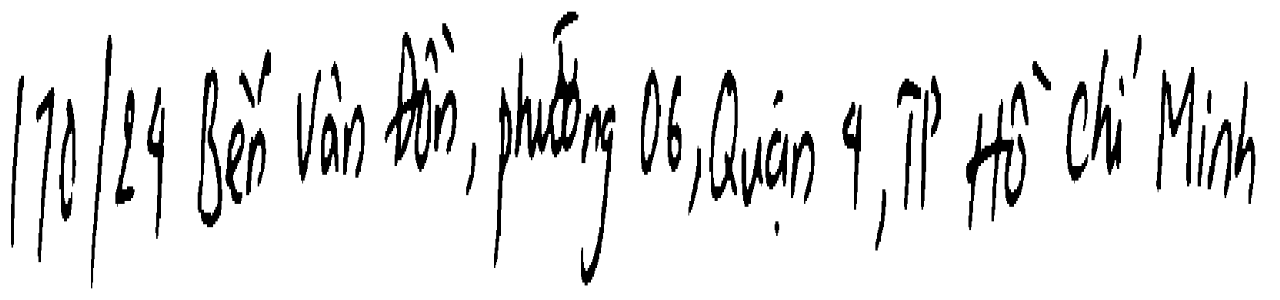 170/24 Bến Vân Đồn, phường 06, Quận 4, TP Hồ Chí Minh